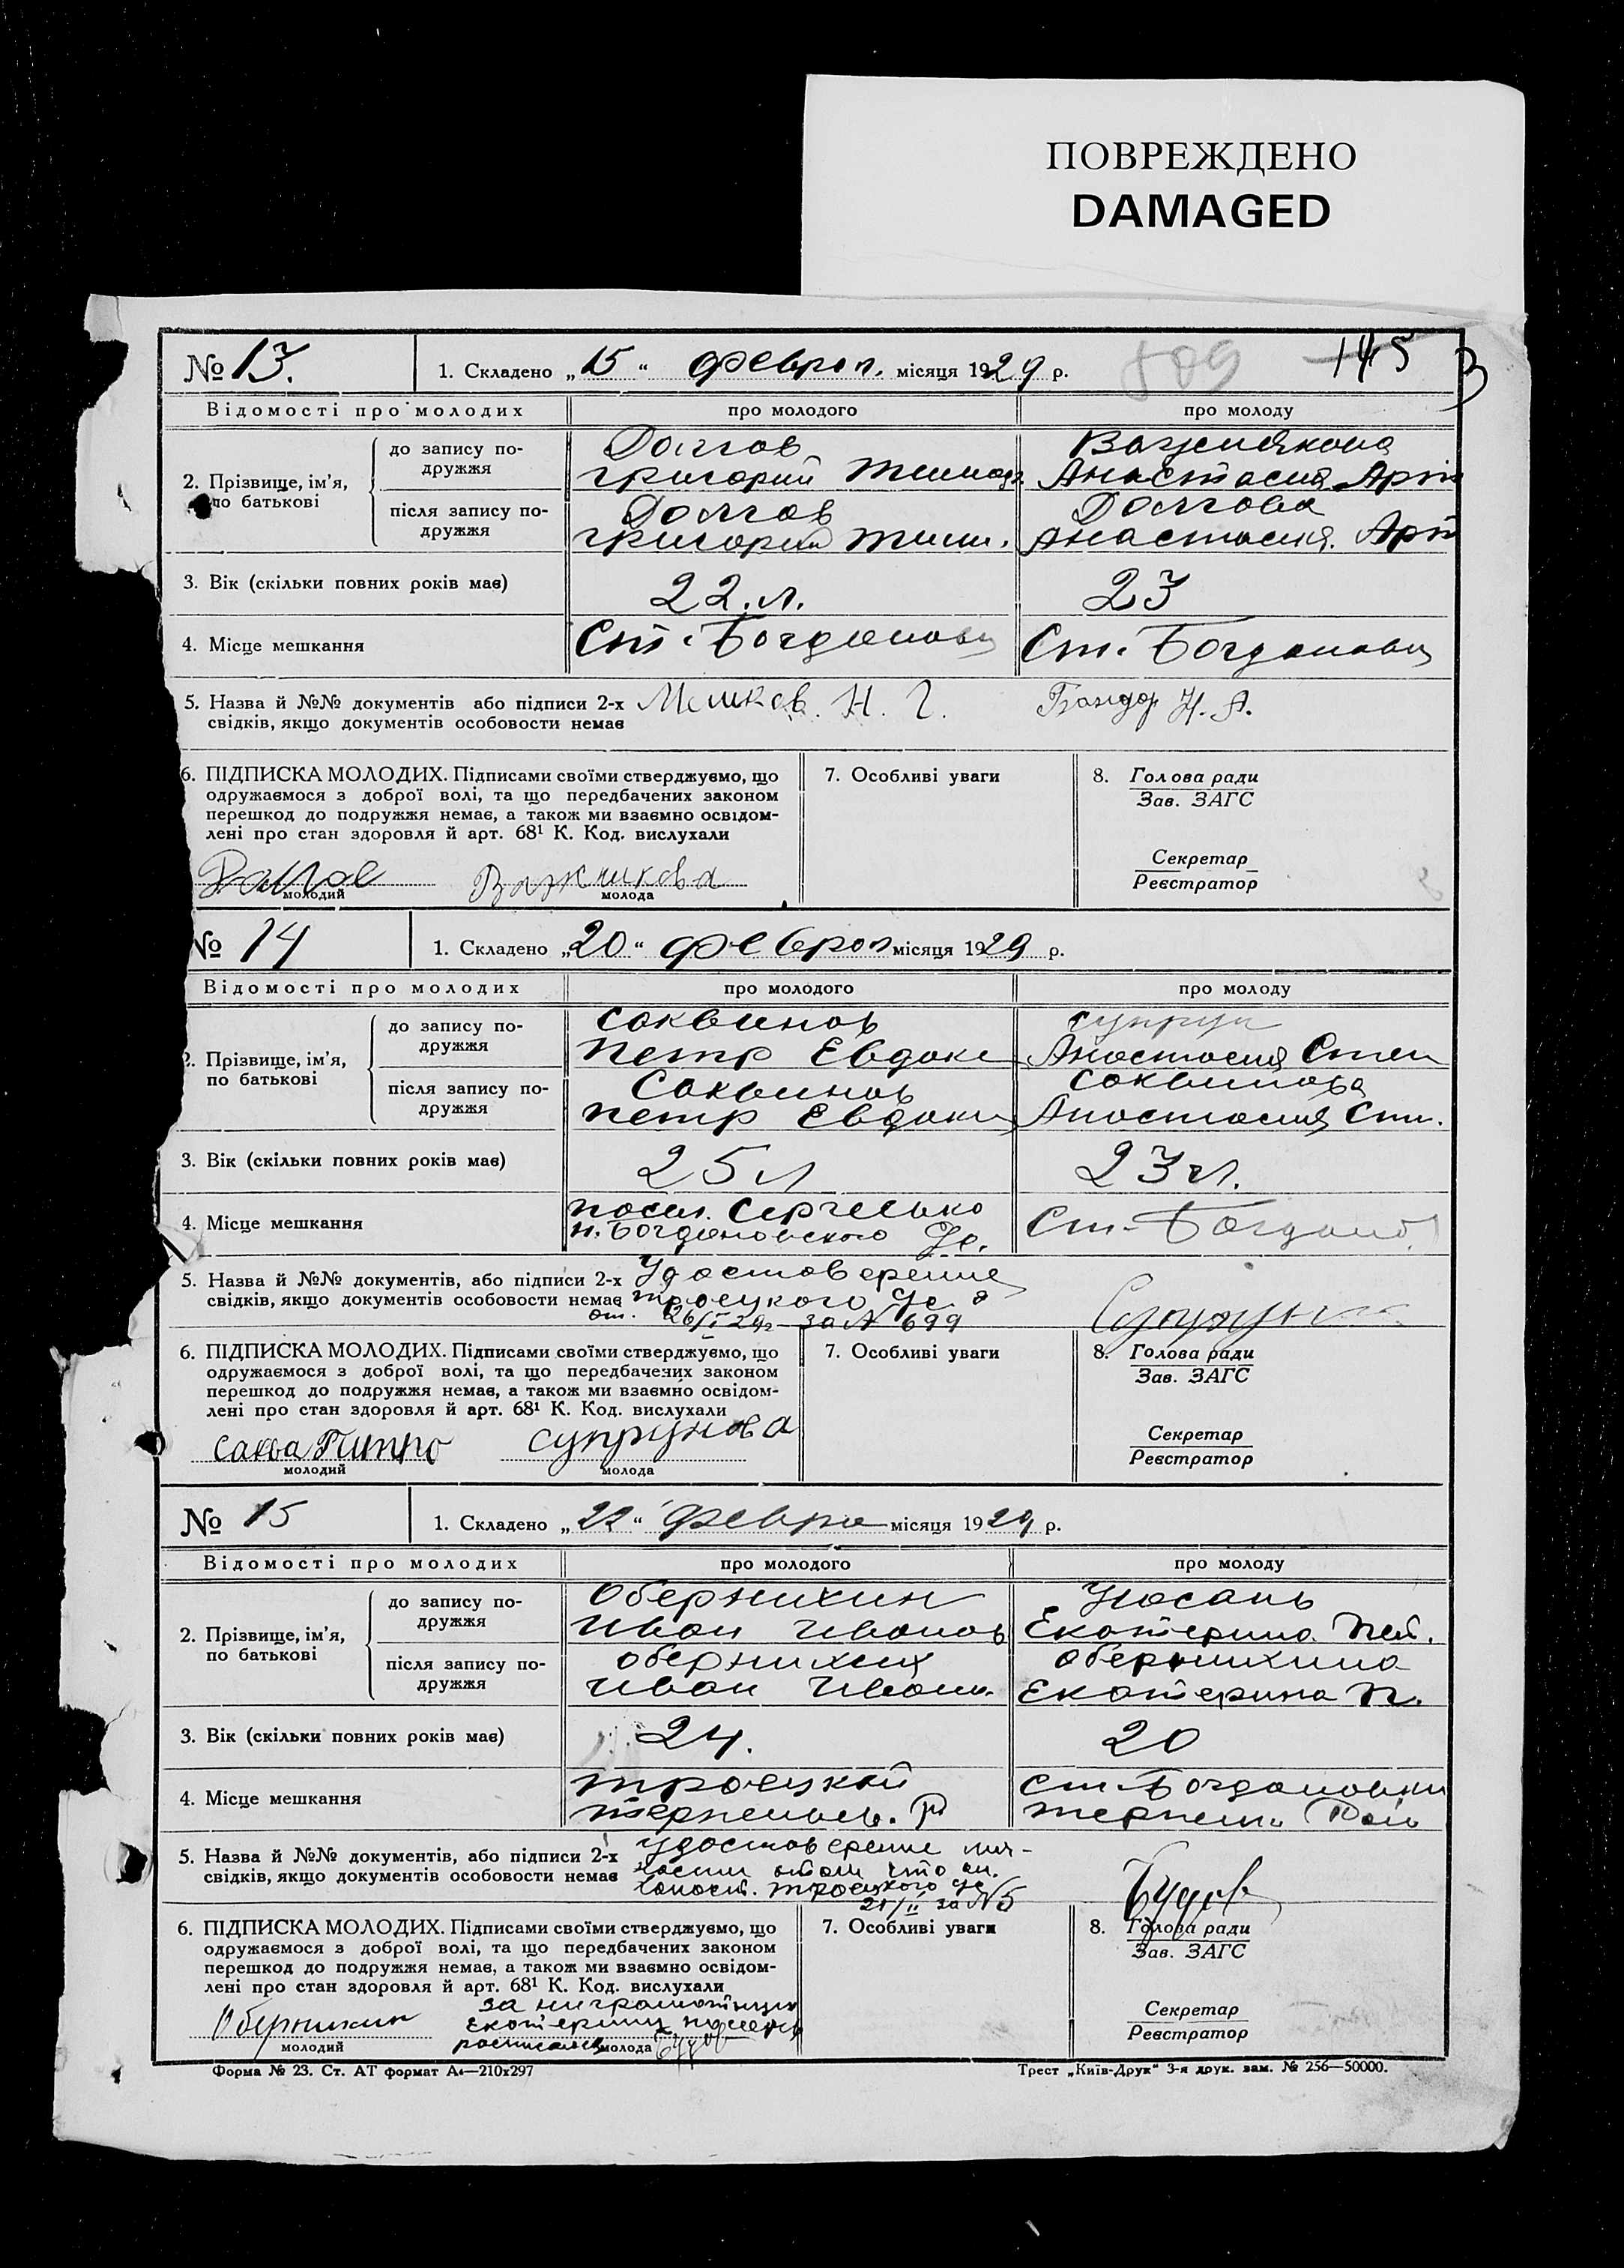 ПОВРЕЖДЕНО
DAMAGED
145
809
№ 13.
1. Складено „15“ феврал. місяця 1929 р.
Відомості про молодих
про молодого
про молоду
2. Прізвище, ім’я, по батькові
до запису подружжя
Долгов
Григорий Тимоф.
Анастасия Арт
після запису подружжя
Долгов
Григорий Тим.
Долгова
Анастасия. Арт
3. Вік (скільки повних років має)
22. л.
23
4. Місце мешкання
Ст. Богдановы
Ст. Богдановы
5. Назва й №№ документів або підписи 2-х
свідків, якщо документів особовости немає
Н. Г.
Бондар Н. А.
6. ПІДПИСКА МОЛОДИХ. Підписами своїми стверджуємо, що
одружаємося з доброї волі, та що передбачених законом
перешкод до подружжя немає, а також ми взаємно освідом-
лені про стан здоровля й арт. 68¹ К. Код. вислухали
Важникова
молодий
молода
7. Особливі уваги
8. Голова ради
Зав. ЗАГС
Секретар
Реєстратор
№ 14
1. Складено „20“ феврал місяця 1929 р.
Відомості про молодих
про молодого
про молоду
2. Прізвище, ім’я,
по батькові
до запису по-
дружжя
Саквинов
Петр Евдоки
Супрун
Анастасия Степ
після запису по-
дружжя
Саквинов
Петр Евдоки
Саквинова
Анастасия Ст.
3. Вік (скільки повних років має)
25 л
23 л.
4. Місце мешкання
посел. Сергеевко
Н. Богдановского
Ст. Богданов
5. Назва й №№ документів, або підписи 2-х
свідків, якщо документів особовости немає
Удостоверение
Троецкого
от. 26/I 29г за № 699
6. ПІДПИСКА МОЛОДИХ. Підписами своїми стверджуємо, що
одружаємося з доброї волі, та що передбачених законом
перешкод до подружжя немає, а також ми взаємно освідом-
лені про стан здоровля й арт. 68¹ К. Код. вислухали
Супрунова
молодий
молода
7. Особливі уваги
8. Голова ради
Зав. ЗАГС
Секретар
Реєстратор
№ 15
1. Складено „22“ Февра місяця 1929 р.
Відомості про молодих
про молодого
про молоду
2. Прізвище, ім’я,
по батькові
до запису по-
дружжя
Обернихин
Иван Иванов
Екатерина Пет.
після запису по-
дружжя
Обернихин
Иван Иван.
Обернихина
Екатерина П.
3. Вік (скільки повних років має)
24.
20
4. Місце мешкання
Троецкой
ст. Богдановки
5. Назва й №№ документів, або підписи 2-х
свідків, якщо документів особовости немає
Удостоверение лич-
ности
Троецкого
21/II за № 5
6. ПІДПИСКА МОЛОДИХ. Підписами своїми стверджуємо, що
одружаємося з доброї волі, та що передбачених законом
перешкод до подружжя немає, а також ми взаємно освідом-
лені про стан здоровля й арт. 68¹ К. Код. вислухали
Обернихин
за
Екатерину
молодий
молода
7. Особливі уваги
8. Голова ради
Зав. ЗАГС
Секретар
Реєстратор
Форма № 23. Ст. АТ формат А4—210x297
Трест „Київ-Друк“ 3-я друк. зам. № 256—50000.